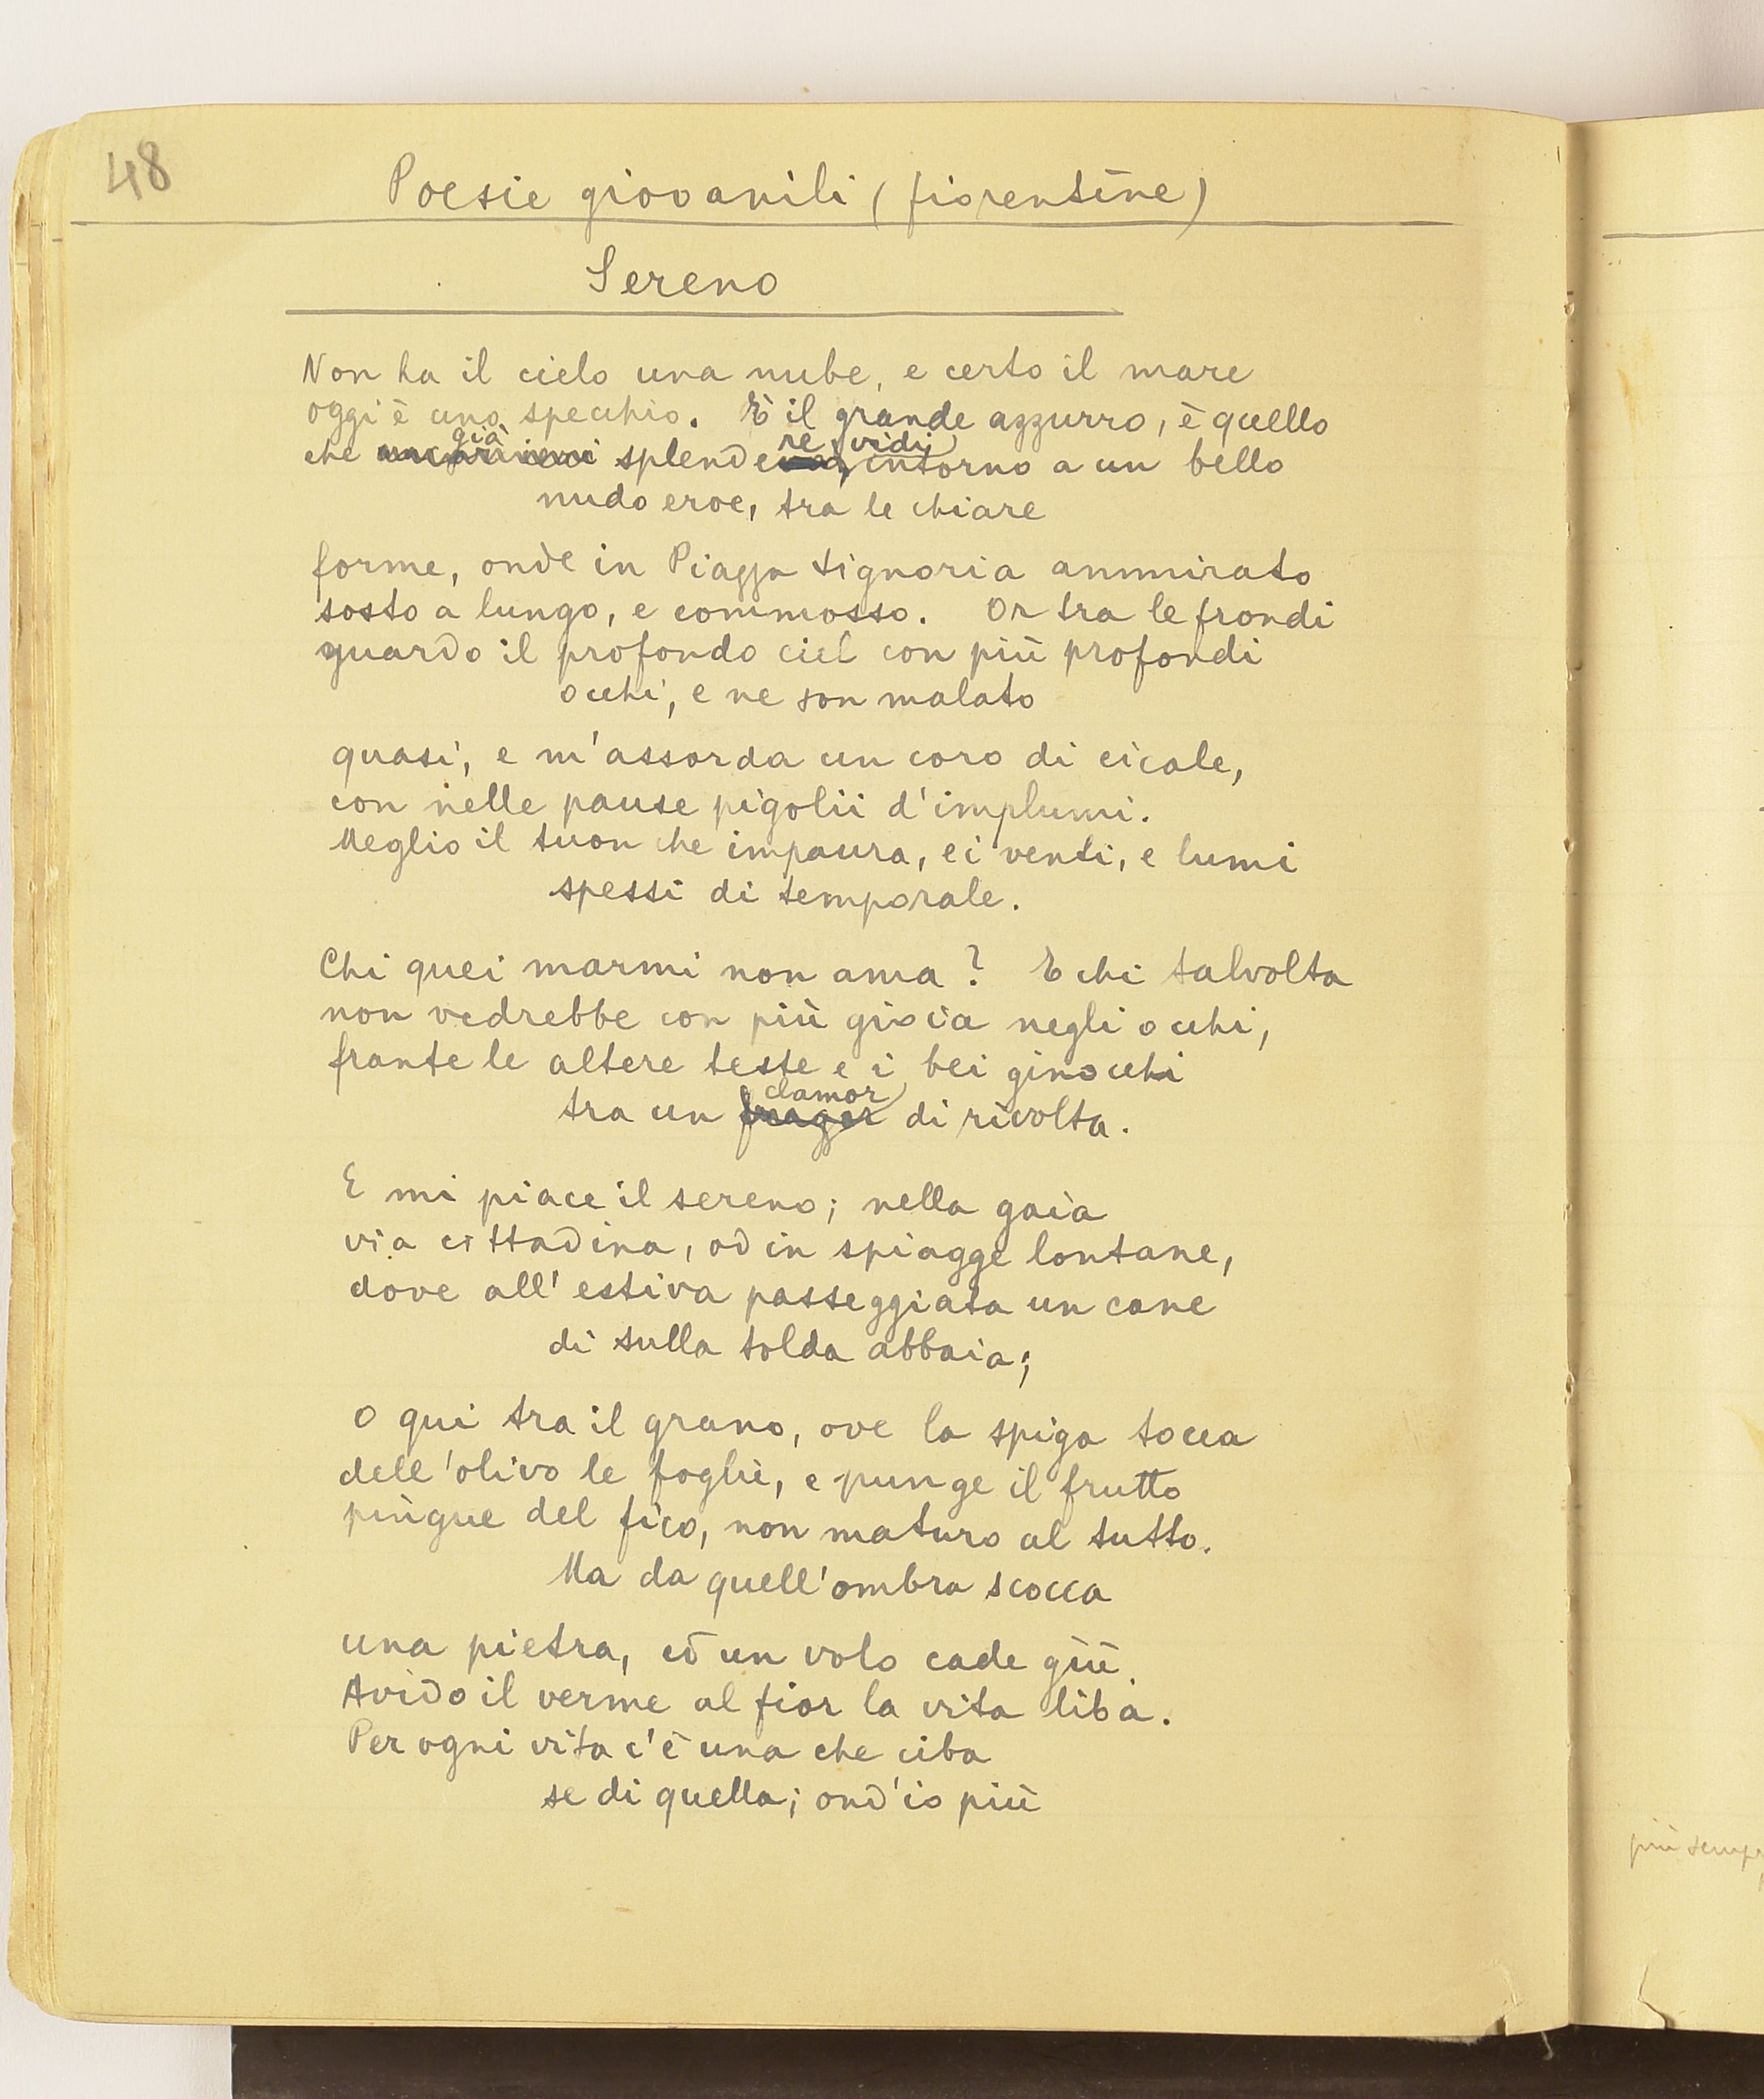 48
Poesie giovanili (fiorentine)
Sereno
Non ha il cielo una nube, e certo il mare
oggi è uno specchio. È il grande azzurro, è quello
che già splendere vidi intorno a un bello
nudo eroe, tra le chiare
forme, onde in Piazza Signoria ammirato
sosto a lungo, e commosso. Or tra le frondi
guardo il profondo ciel con più profondi
occhi, e ne son malato
quasi, e m'assorda un coro di cicale,
con nelle pause pigolii d'implumi.
Meglio il tuon che impaura, e i venti, e lumi
spessi di temporale.
Chi quei marmi non ama? E chi talvolta
non vedrebbe con più gioia negli occhi,
frante le altere teste e i bei ginocchi
tra un frager clamor di rivolta.
E mi piace il sereno; nella gaia
via cittadina, od in spiagge lontane,
dove all'estiva passeggiata un cane
di sulla tolda abbaia;
O qui tra il grano, ove la spiga tocca
dell'olivo le foglie, e punge il frutto
pingue del fico, non maturo al tutto.
Ma da quell'ombra scocca
una pietra, ed un volo cade giù.
Avido il verme al fior la vita liba.
Per ogni vita c'è una che ciba
se di quella; ond'io più